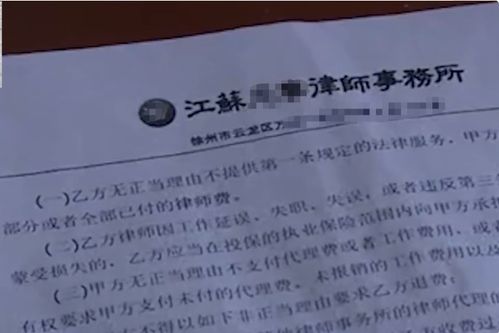 江蘇 律師事務所
徐州市云龙区
(一)乙方无正当理由不提供第一条规定的法律服务,甲方
部分或者全部已付的律师费。
(二)乙方律师因工作延误、失职、失误,或者违反第三
蒙受损失的,乙方应当在投保的执业保险范围内向甲方承担
(三)甲方无正当理由不支付代理费或者工作费用,或者
有权要求甲方支付未付的代理费、未报销的工作费用以及
不得以如下非正当理由要求乙方退费:
律师事务所的律师代理的
收费过